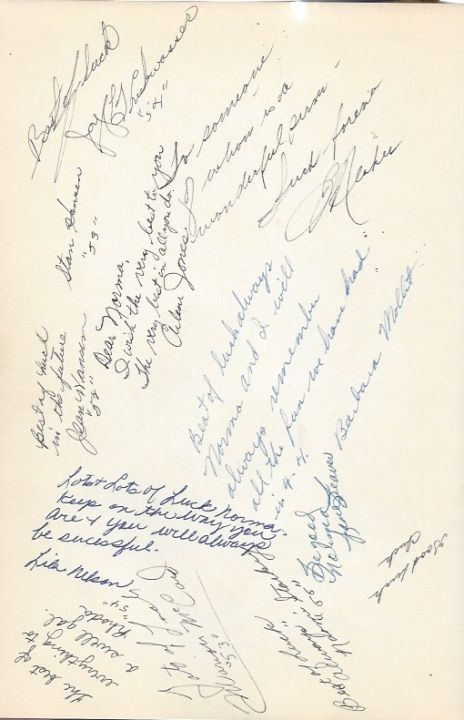 Best of luck
Jay
"54"
To someone
whom is a
wonderful person -
Luck forever
Stan Hansen
"53"
Dear Norma,
I wish the very best to you
The very best in all you do.
Arlene Jones
Best of luck
in the future
Jean Hansen
"52"
Best of luck always
Norma and I will
always remember
all the fun we have had
in 4-4.
Barbara Mollet
Lots & Lots of Luck Norma.
Keep on the way you
are & you will always
be sucessful.
Lila Nelson
Good luck
Chuck
Lots of Luck
"53"
Best of Luck
The best of
everything to
a swell gal.
Rhoda
"54"